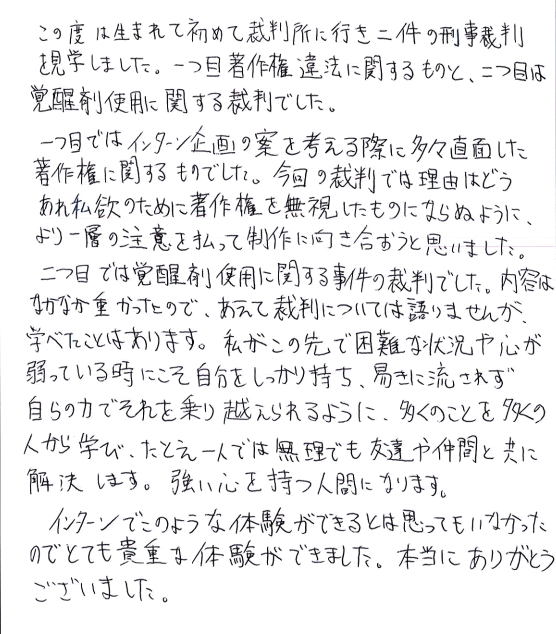 この度は生まれて初めて裁判所に行き二件の刑事裁判
を見学しました。一つ目著作権違法に関するものと、二つ目は
覚醒剤使用に関する裁判でした。
一つ目ではインターン企画の案を考える際に多々直面した
著作権に関するものでした。今回の裁判では理由はどう
あれ私欲のために著作権を無視したものにならぬように、
より一層の注意を払って制作に向き合おうと思いました。
二つ目では覚醒剤使用に関する事件の裁判でした。内容は
なかなか重かったので、あえて裁判については語りませんが、
学べたことはあります。私がこの先で困難な状況や心が
弱っている時にこそ自分をしっかり持ち、易きに流されず
自らの力でそれを乗り越えられるように、多くのことを多くの
人から学び、たとえ一人では無理でも友達や仲間と共に
解決します。強い心を持つ人間になります。
インターンでこのような体験ができるとは思ってもいなかった
のでとても貴重な体験ができました。本当にありがとう
ございました。